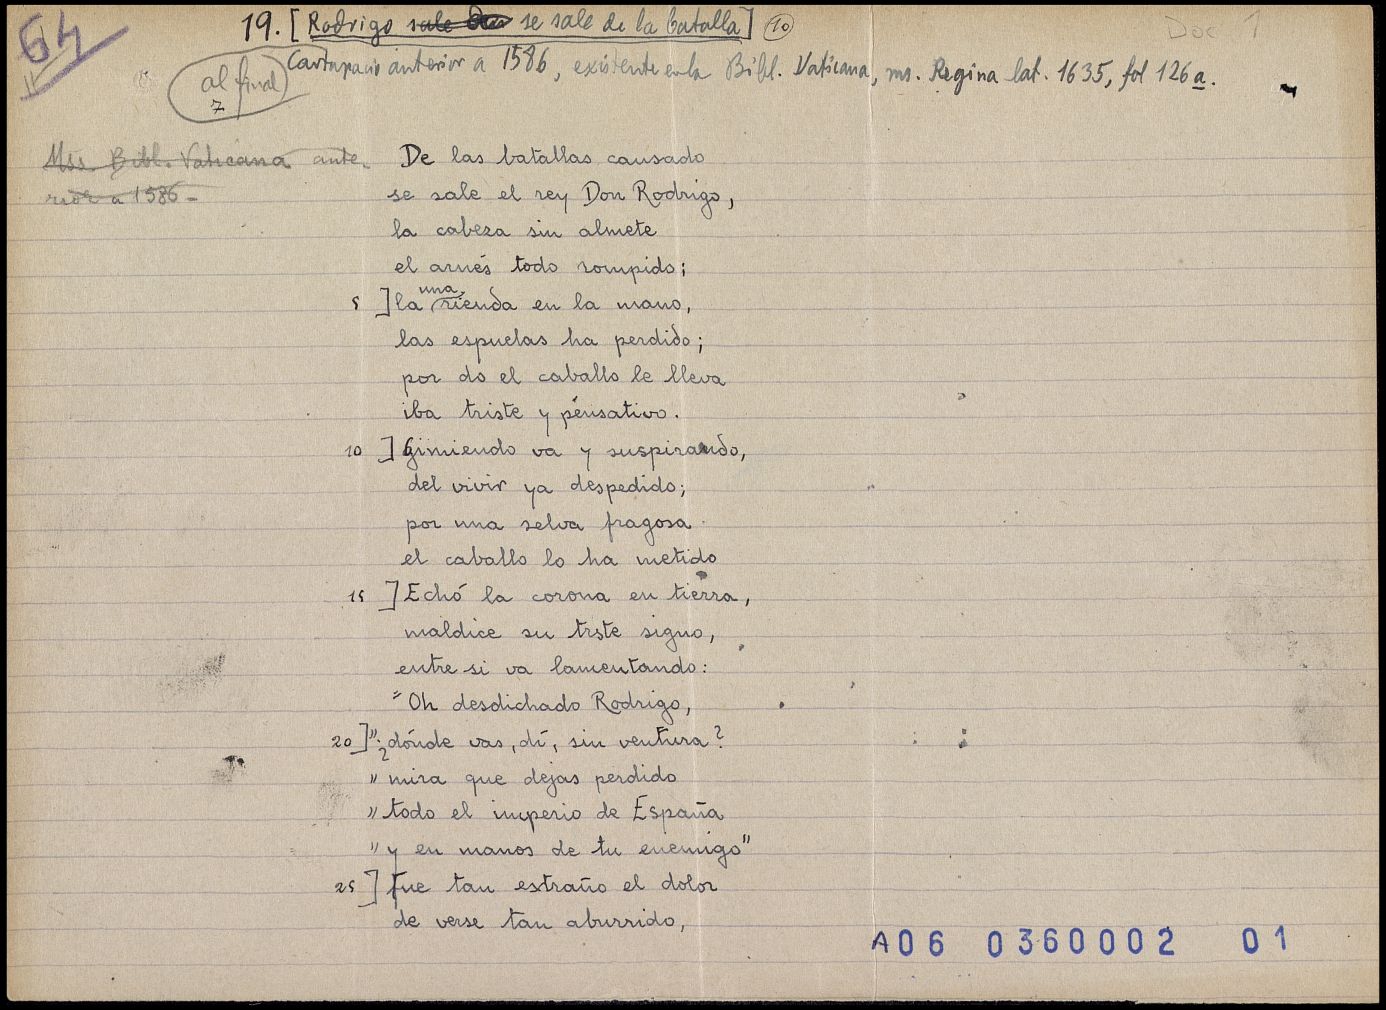 64
Doc 1
19. [Rodrigo sale se sale de la batalla] 10
al final
7
Cartapacio anterior a 1586, existente en la Bibl. Vaticana, ms. Regina lat. 1635, fol 126a.
Mss. Bibl. Vaticana ante-
rior a 1586-
De las batallas causado
se sale el rey Don Rodrigo,
la cabeza sin almete
el arnés todo rompido;
5 ] la una rienda en la mano,
las espuelas ha perdido;
por do el caballo le lleva
iba triste y pensativo.
10 ] Gimiendo va y suspirando,
del vivir ya despedido;
por una selva fragosa
el caballo lo ha metido
15 ] Echó la corona en tierra,
maldice su trste signo,
entre si va lamentando:
"Oh desdichado Rodrigo,
20 ] "¿dónde vas, dí, sin ventura?
"mira que dejas perdido
"todo el imperio de España
"y en manos de tu enemigo"
25 ] fue tan extraño el dolor
de verse tan aburrido,
A06 0360002 01